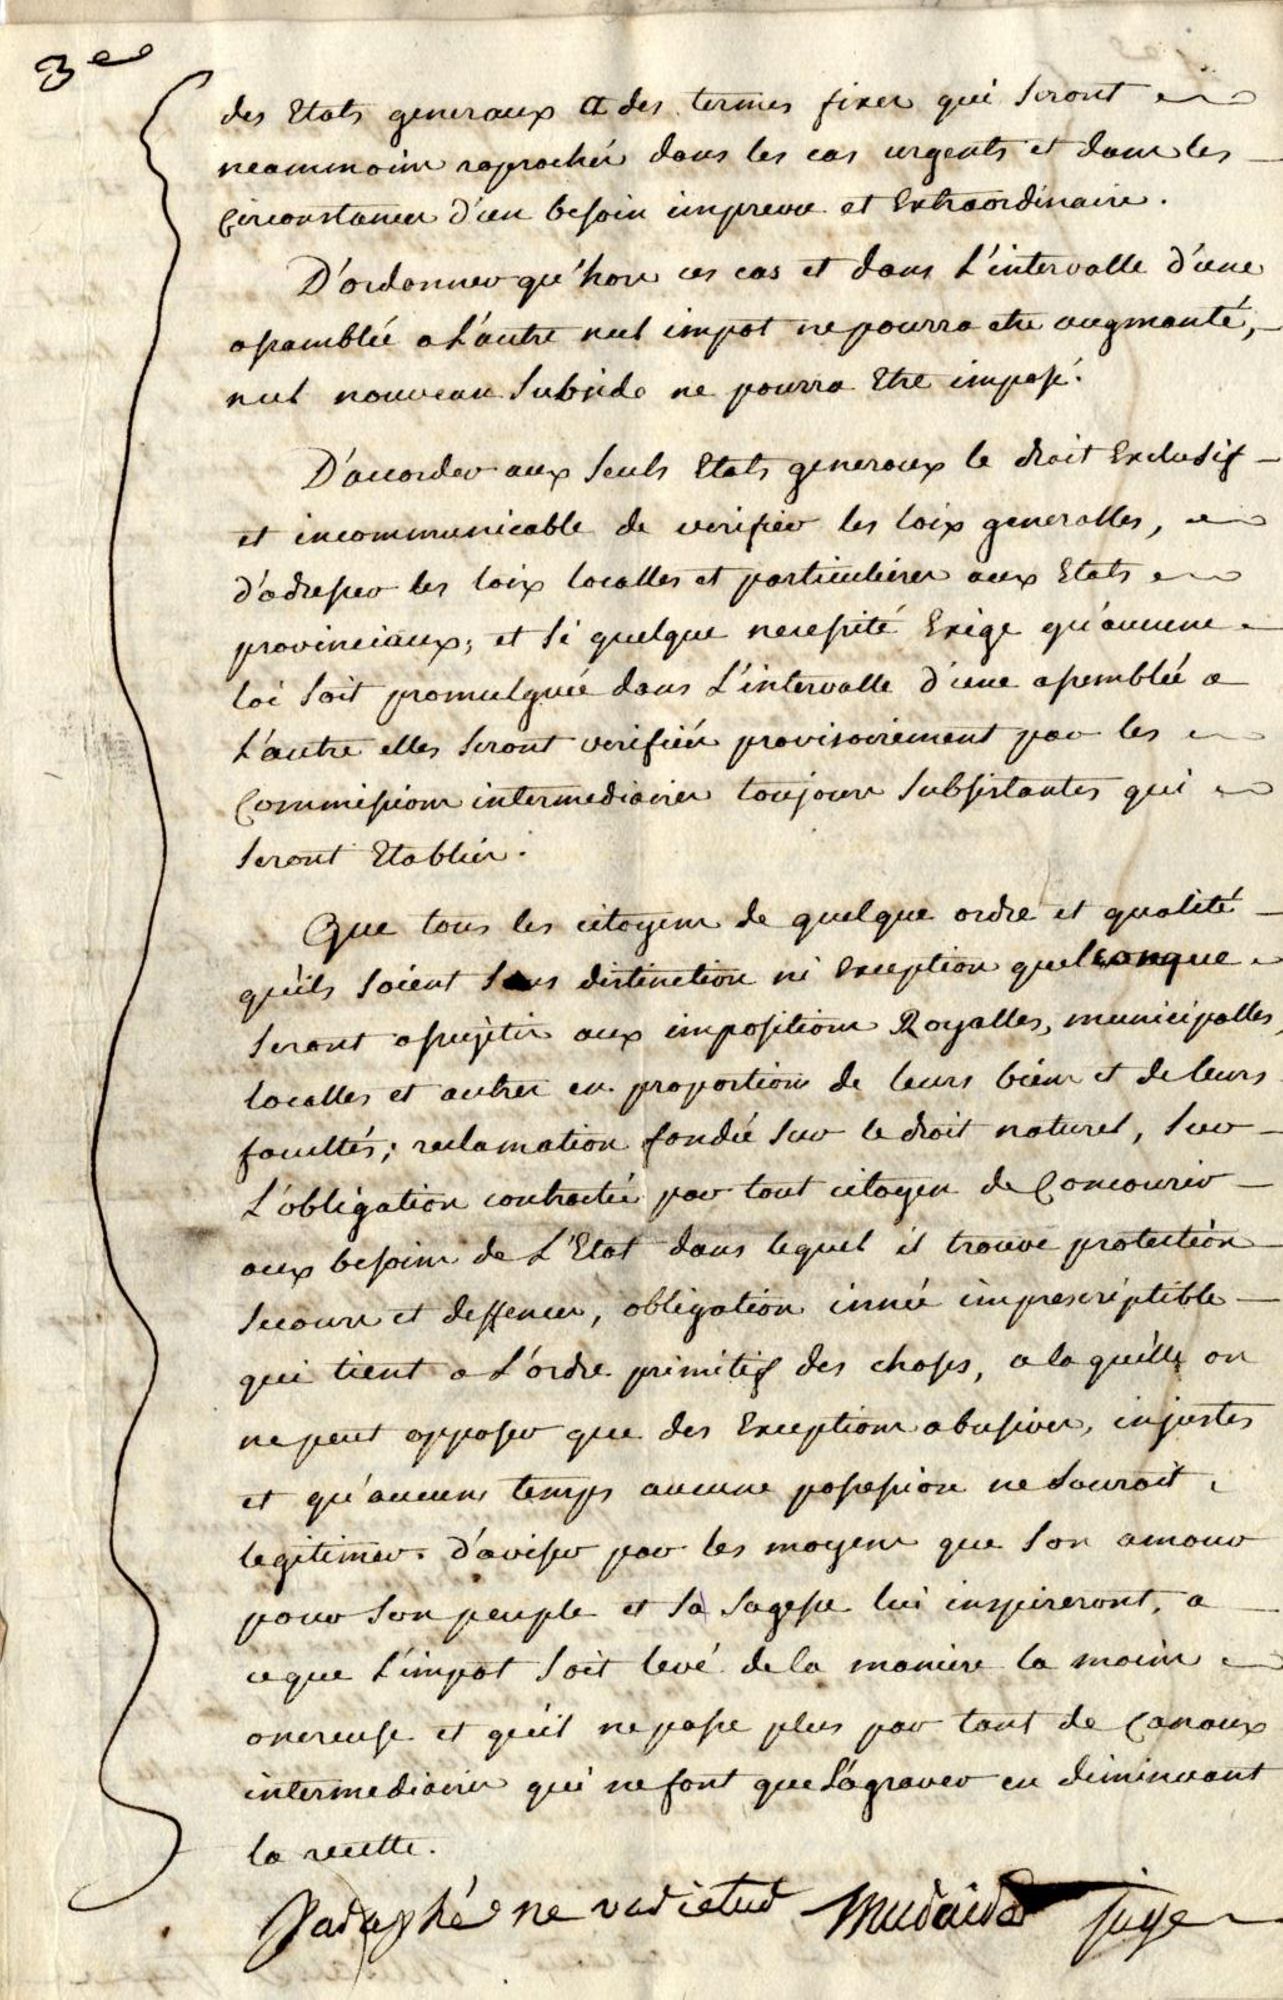 3e
des Etats generaux a des termes fixes qui seront
neammoins raprochés dans les cas urgents et dans les
Circonstances d'un besoin imprevu et Extraordinaire.
D'ordonner qu'hors ces cas et dans L'intervalle d'une
assamblée a L'autre nul impot ne pourra etre augmanté,
nul nouveau Subside ne pourra Etre imposé.
D'accorder aux Seuls Etats generaux le droit Exclusif
et incommunicable de verifier les loix generalles,
d'adresser les loix localles et particulieres aux Etats
provinciaux; et Si quelque necessité Exige qu'aucune
loi Soit promulguée dans L'intervalle d'une assemblée a
L'autre elles Seront verifiées provisoirement par les
Commissions intermediaires toujours Subsistantes qui
Seront Etablies.
Que tous les citoyens de quelque ordre et qualité
qu'ils Soient Sans distinction ni Exception quelconque
Seront assujetis aux impositions Royalles, municipalles,
localles et autres en proportion de leurs biens et de leurs
facultés; reclamation fondée Sur le droit naturel, Sur
L'obligation contractée par tout citoyen de Concourir
aux besoins de L'Etat dans lequel il trouve protection
Secours et deffences, obligation innée imprescriptible
qui tient a L'ordre primitif des choses, a laquelle on
ne peut opposer que des Exceptions abusives, injustes
et qu'aucuns temps aucune possession ne Sauroit
legitimer. d'aviser par les moyens que Son amour
pour Son peuple et Sa Sagesse lui inspireront, a
ce que L'impot Soit levé de la maniere la moins
onereuse et qu'il ne passe plus par tant de Canaux
intermediaires qui ne font que L'agraver en diminuant
la recette.
Paraphé ne varietur juge